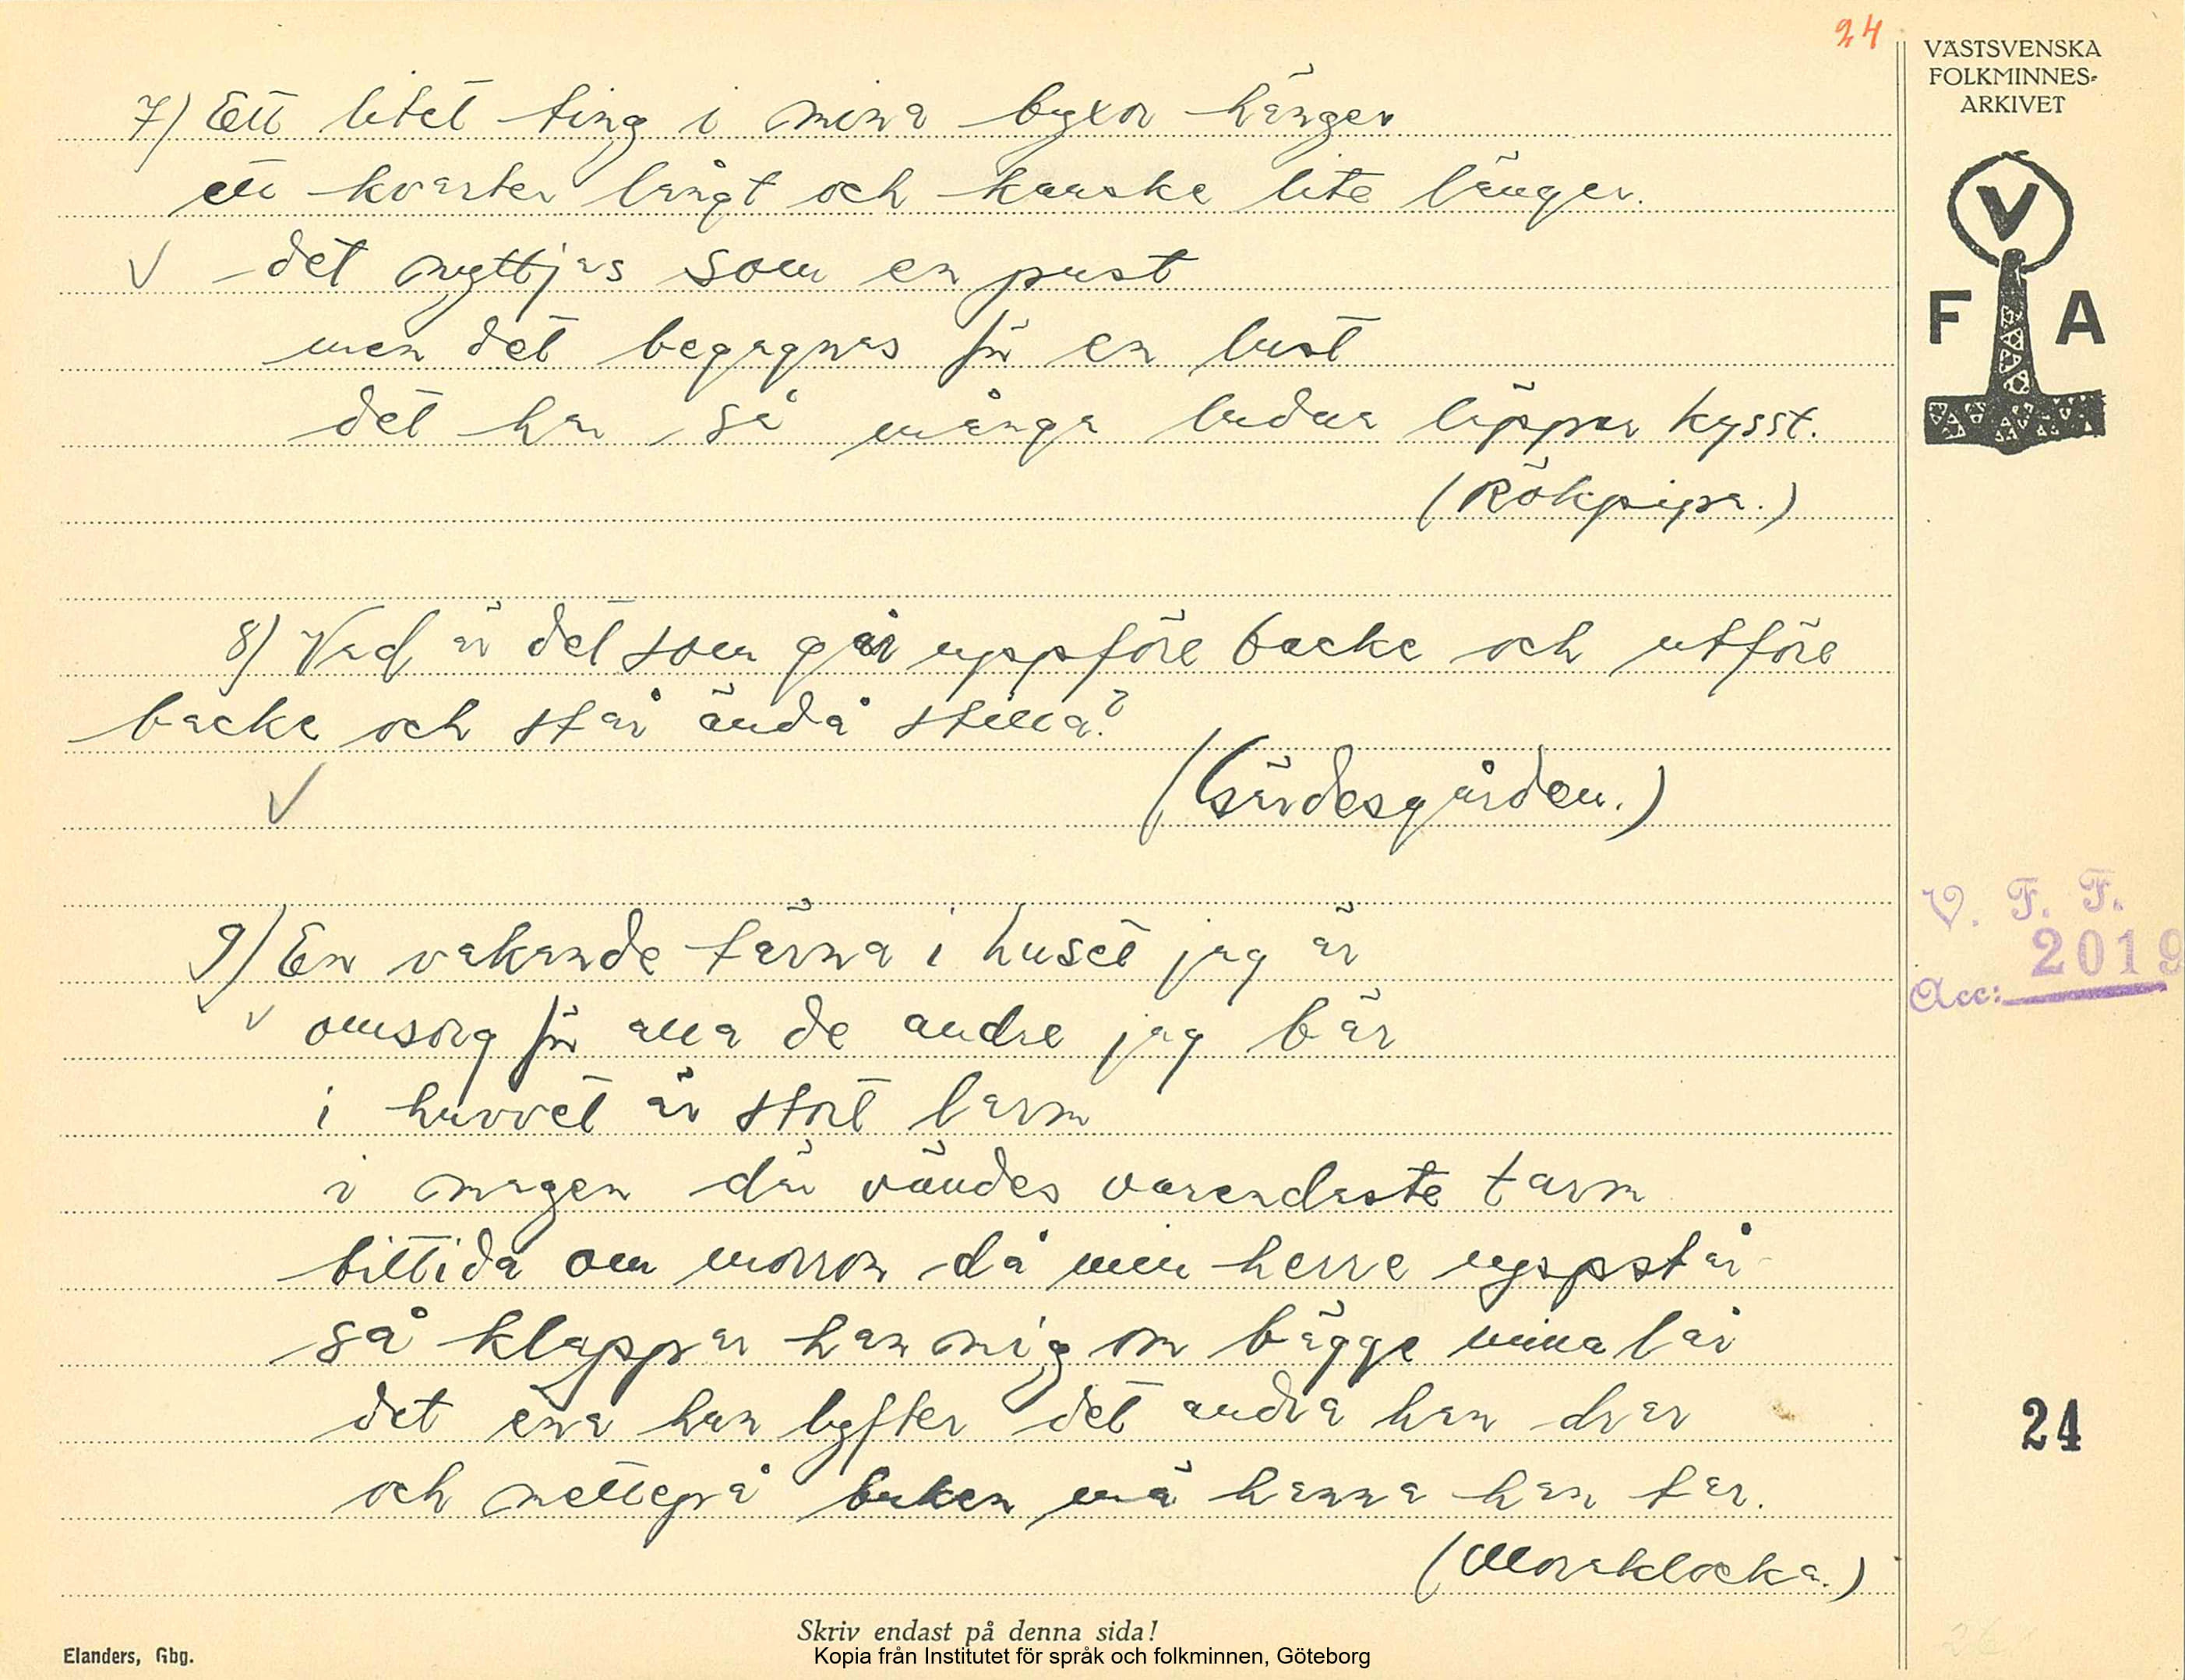 24
VÄSTSVENSKA
FOLKMINNES-
ARKIVET
V
F A
7) Ett litet ting i mina byxor hänger
ett kvarter långt och kanske lite länger.
det nyttjas som en pust
men det begagnas för en lust
det har så många ludna läppar kysst.
(Rökpipa.)
8) Vad är det som går uppföre backe och utföre
backe och står ändå stilla?
(Gärdesgården.)
9) En vakande tärna i huset jag är
omsorg för alla de andre jag bär
i huvvet är stort larm
i magen där vändes varendaste tarm
bittida om morron då min herre uppstår
så klappar han mig om bägge mina lår
det ena han lyfter det andra han drar
och mettepå buken må hanna han tar.
(Moraklocka.)
V. F. F.
2019
Acc:
24
Skriv endast på denna sida!
Elanders, Gbg.
Kopia från Institutet för språk och folkminnen, Göteborg